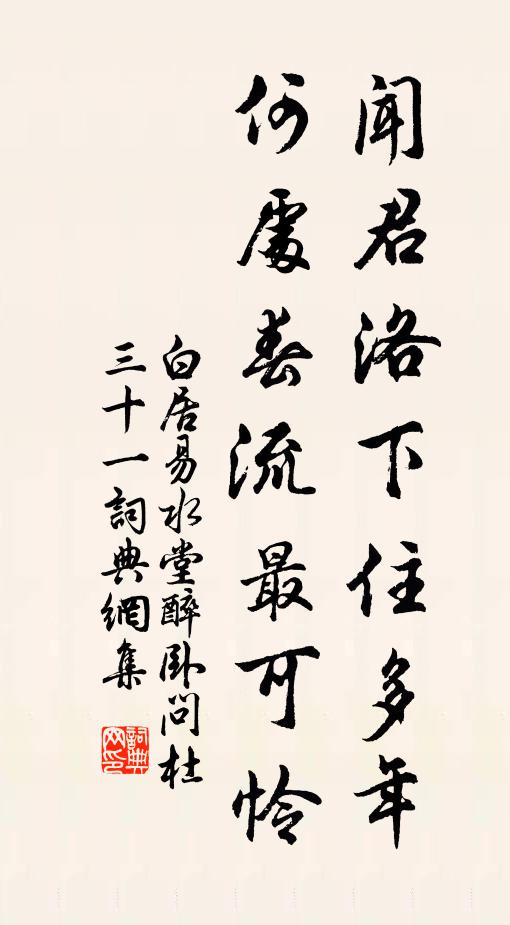 闻君洛下住多年
何處春流最可怜
白居易水堂醉卧问杜
三十一詞典網集
詞典网印